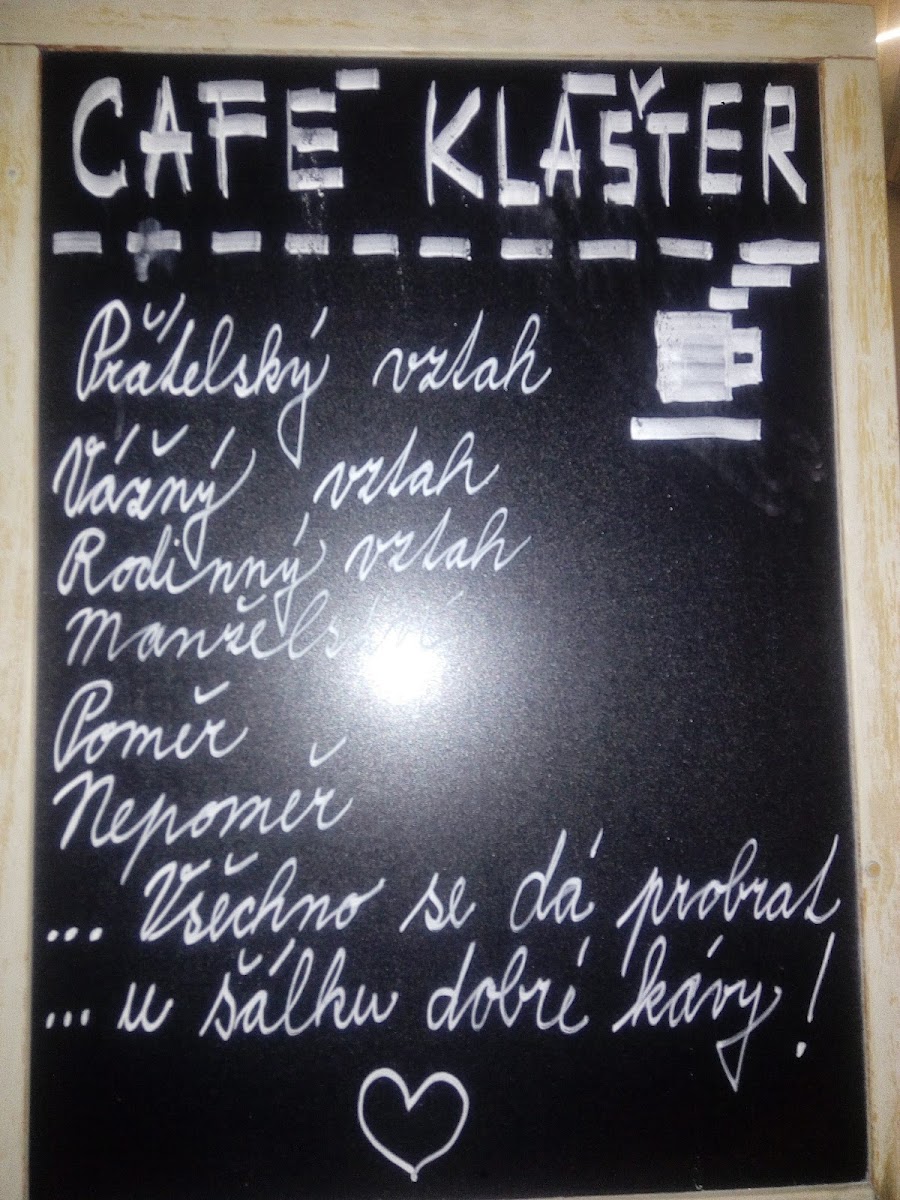 CAFÉ KLÁŠTER
Přátelský vztah
Vážný vztah
Rodinný vztah
Manželství
Poměr
Nepoměr
... Všechno se dá probrat
... u šálku dobré kávy!